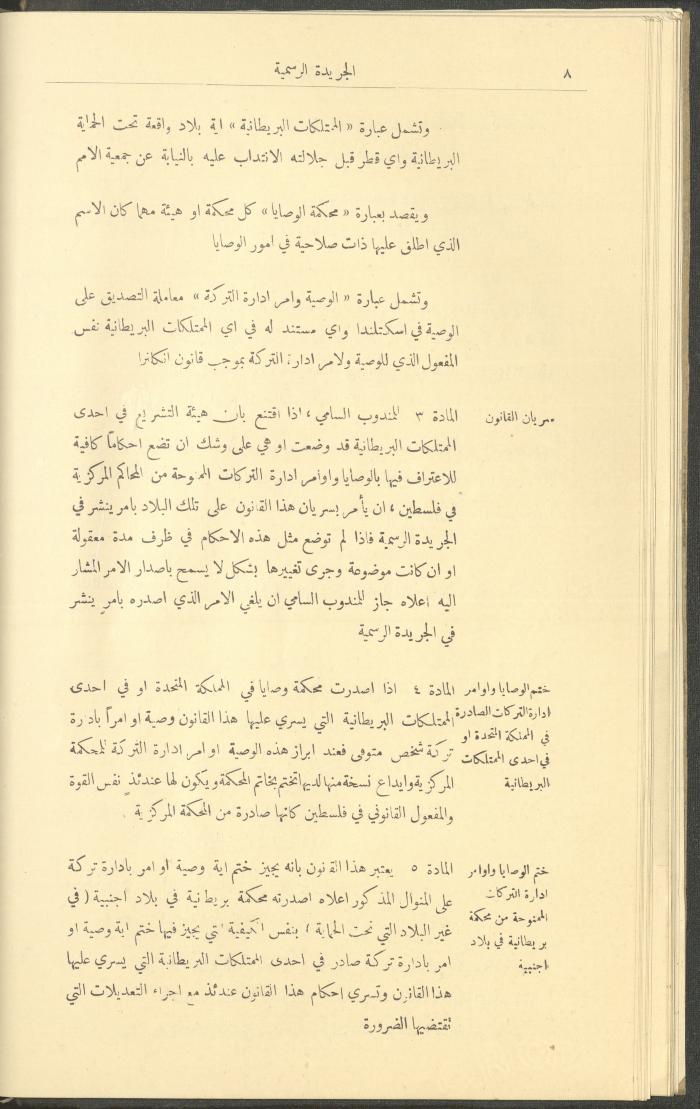 الجريدة الرسمية ٨
وتشمل عبارة « الممتلكات البريطانية » اية بلاد واقعة تحت الحماية
البريطانية واي قطر قبل جلالته الانتداب عليه بالنيابة عن جمعية الامم
ويقصد بعبارة « محكمة الوصايا » كل محكمة او هيئة مهما كان الاسم
الذي اطلق عليها ذات صلاحية في امور الوصايا
وتشمل عبارة « الوصية وامر ادارة التركة » معاملة التصديق على
الوصية في اسكتلندا واي مستند له في اي الممتلكات البريطانية نفس
المفعول الذي للوصية ولامر ادارة التركة بموجب قانون انكلترا
سريان القانون
المادة ٣ للمندوب السامي ، اذا اقتنع بان هيئة التشريع في احدى
الممتلكات البريطانية قد وضعت او هي على وشك ان تضع احكاماً كافية
للاعتراف فيها بالوصايا واوامر ادارة التركات الممنوحة من المحاكم المركزية
في فلسطين ، ان يأمر بسريان هذا القانون على تلك البلاد بامر ينشر في
الجريدة الرسمية فاذا لم توضع مثل هذه الاحكام في ظرف مدة معقولة
او ان كانت موضوعة وجرى تغييرها بشكل لا يسمح باصدار الامر المشار
اليه اعلاه جاز للمندوب السامي ان يلغي الامر الذي اصدره بامر ينشر
في الجريدة الرسمية
ختم الوصايا واوامر
ادارة التركات الصادرة
في المملكة المتحدة او
في احدى الممتلكات
البريطانية
المادة ٤ اذا اصدرت محكمة وصايا في المملكة المتحدة او في احدى
الممتلكات البريطانية التي يسري عليها هذا القانون وصية او امراً بادارة
تركة شخص متوفى فعند ابراز هذه الوصية او امر ادارة التركة للمحكمة
المركزية وايداع نسخة منها لديها تختم بخاتم المحكمة ويكون لها عندئذٍ نفس القوة
والمفعول القانوني في فلسطين كانها صادرة من المحكمة المركزية .
ختم الوصايا واوامر
ادارة التركات
الممنوحة من محكمة
بريطانية في بلاد
اجنبية
المادة ٥ يعتبر هذا القانون بانه يجيز ختم اية وصية او امر بادارة تركة
على المنوال المذكور اعلاه اصدرته محكمة بريطانية في بلاد اجنبية ( في
غير البلاد التي تحت الحماية ) بنفس الكيفية التي يجيز فيها ختم اية وصية او
امر بادارة تركة صادر في احدى الممتلكات البريطانية التي يسري عليها
هذا القانون وتسري احكام هذا القانون عندئذ مع اجراء التعديلات التي
تقتضيها الضرورة